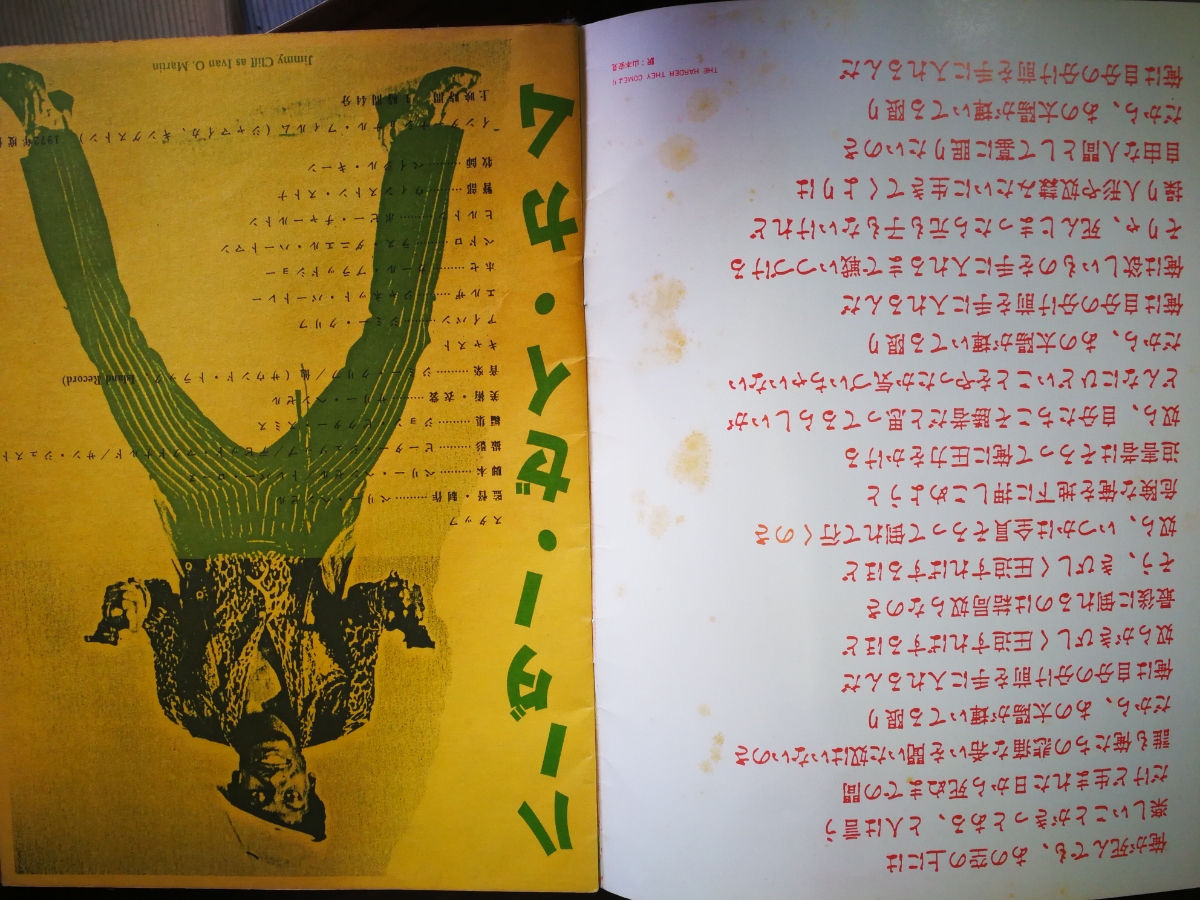 俺が死んでも、あの空の上には
楽しいことがきっとある、と人は言う
だけど生まれた日から死ぬまでの間
誰も俺たちの悲痛な希いを聞いた奴はいないのさ
だから、あの太陽が輝いてる限り
俺は自分の分け前を手に入れるんだ
奴らがきびしく圧迫すればするほど
最後に倒れるのは結局奴らなのさ
そう、きびしく圧迫すればするほど
奴ら、いつかは全員そろって倒れて行くのさ
危険な俺を地下に押しこめようと
迫害者はそろって俺に圧力をかける
奴ら、自分たちこそ勝者だと思ってるらしいが
どんなにひどいことをやったか気づいちゃいない
だから、あの太陽が輝いてる限り
俺は自分の分け前を手に入れるんだ
俺は欲しいものを手に入れるまで戦いつづける
そりゃ、死んじまったら元も子もないけれど
操り人形や奴隷みたいに生きてくよりは
自由な人間として墓に眠りたいのさ
だから、あの太陽が輝いてる限り
俺は自分の分け前を手に入れるんだ
THE HARDER THEY COMEより
訳：山本安見
ハーダー・ゼイ・カム
スタッフ
監督・制作………ペリー・ヘンゼル
脚本………ペリー・ヘンゼル/トレバー・
撮影………ピーター・ジェソップ/デビッド・マクドナルド/
編集………ジョン・ビクター・スミス
美術・衣裳………サリー・ヘンゼル
音楽………ジミー・クリフ/他（サウンド・トラック、Island Record）
キャスト
アイバン………ジミー・クリフ
エルザ………ジャネット・バートレー
ホセ………カール・ブラッドショー
ペドロ………ラス・ダニエル・ハートマン
ヒルトン………ボビー・チャールトン
警部………ウィンストン・ストナ
牧師………ベイジル・キーン
インターナショナル・フィルム（ジャマイカ、キングストン） 1972年度
上映時間 1時間44分
Jimmy Cliff as Ivan O. Martin